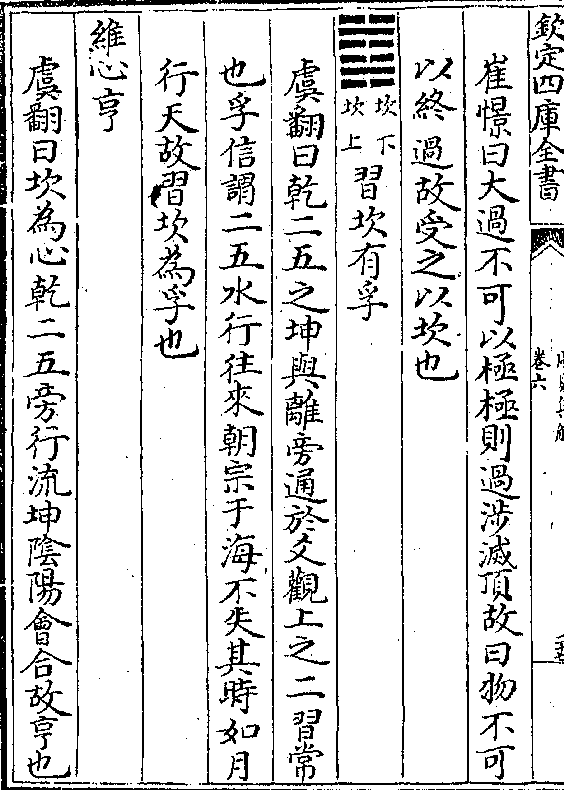 欽定四庫全書
卷六
崔憬曰大過不可以極極則過涉滅頂故曰物不可
以終過故受之以坎也
坎下
坎上
習坎有孚
虞翻曰乾二五之坤與離旁通於爻觀上之二習常
也孚信謂二五水行往來朝宗于海不失其時如月
行天故習坎為孚也
維心亨
虞翻曰坎為心乾二五旁行流坤陰陽會合故亨也